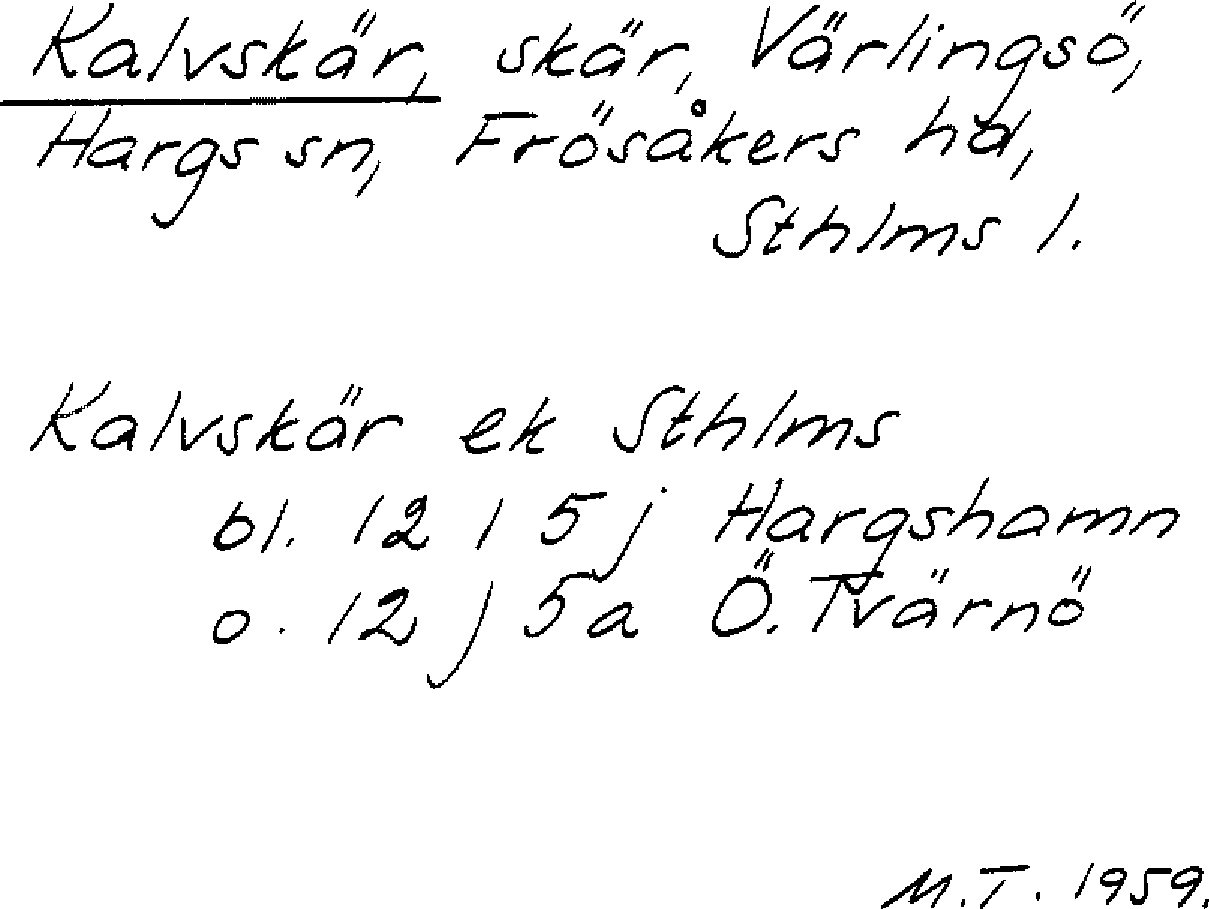 Kalvskär, skär, Värlingsö,
Hargs sn, Frösåkers hd,
Sthlms l.
Kalvskär ek Sthlms
bl. 12 I 5 j Hargshamn
o. 12 J 5a Ö. Tvärnö
M.T. 1959.